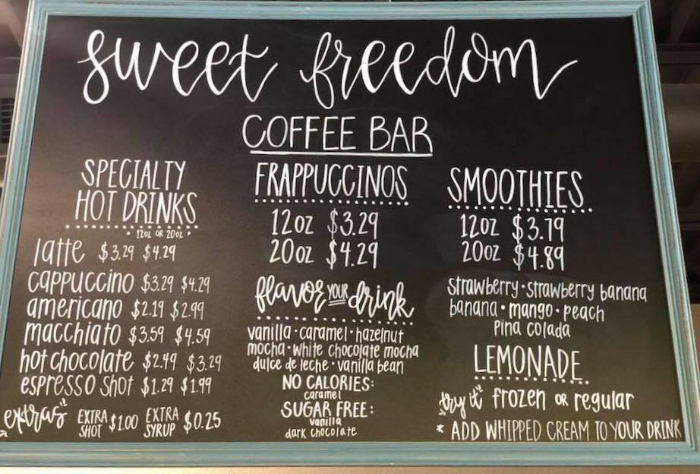 sweet freedom
COFFEE BAR
SPECIALTY
HOT DRINKS
• 12oz OR 20oz •
latte $3.29 $4.29
cappuccino $3.29 $4.29
americano $2.19 $2.99
macchiato $3.59 $4.59
hot chocolate $2.49 $3.29
espresso shot $1.29 $1.99
extras EXTRA SHOT $1.00 EXTRA SYRUP $0.25
FRAPPUCCINOS
12oz $3.29
20oz $4.29
flavor YOUR drink
vanilla • caramel • hazelnut
mocha • white chocolate mocha
dulce de leche • vanilla bean
NO CALORIES:
caramel
SUGAR FREE:
vanilla
dark chocolate
SMOOTHIES
12oz $3.79
20oz $4.89
strawberry • strawberry banana
banana • mango • peach
pina colada
LEMONADE
try it frozen OR regular
* ADD WHIPPED CREAM TO YOUR DRINK